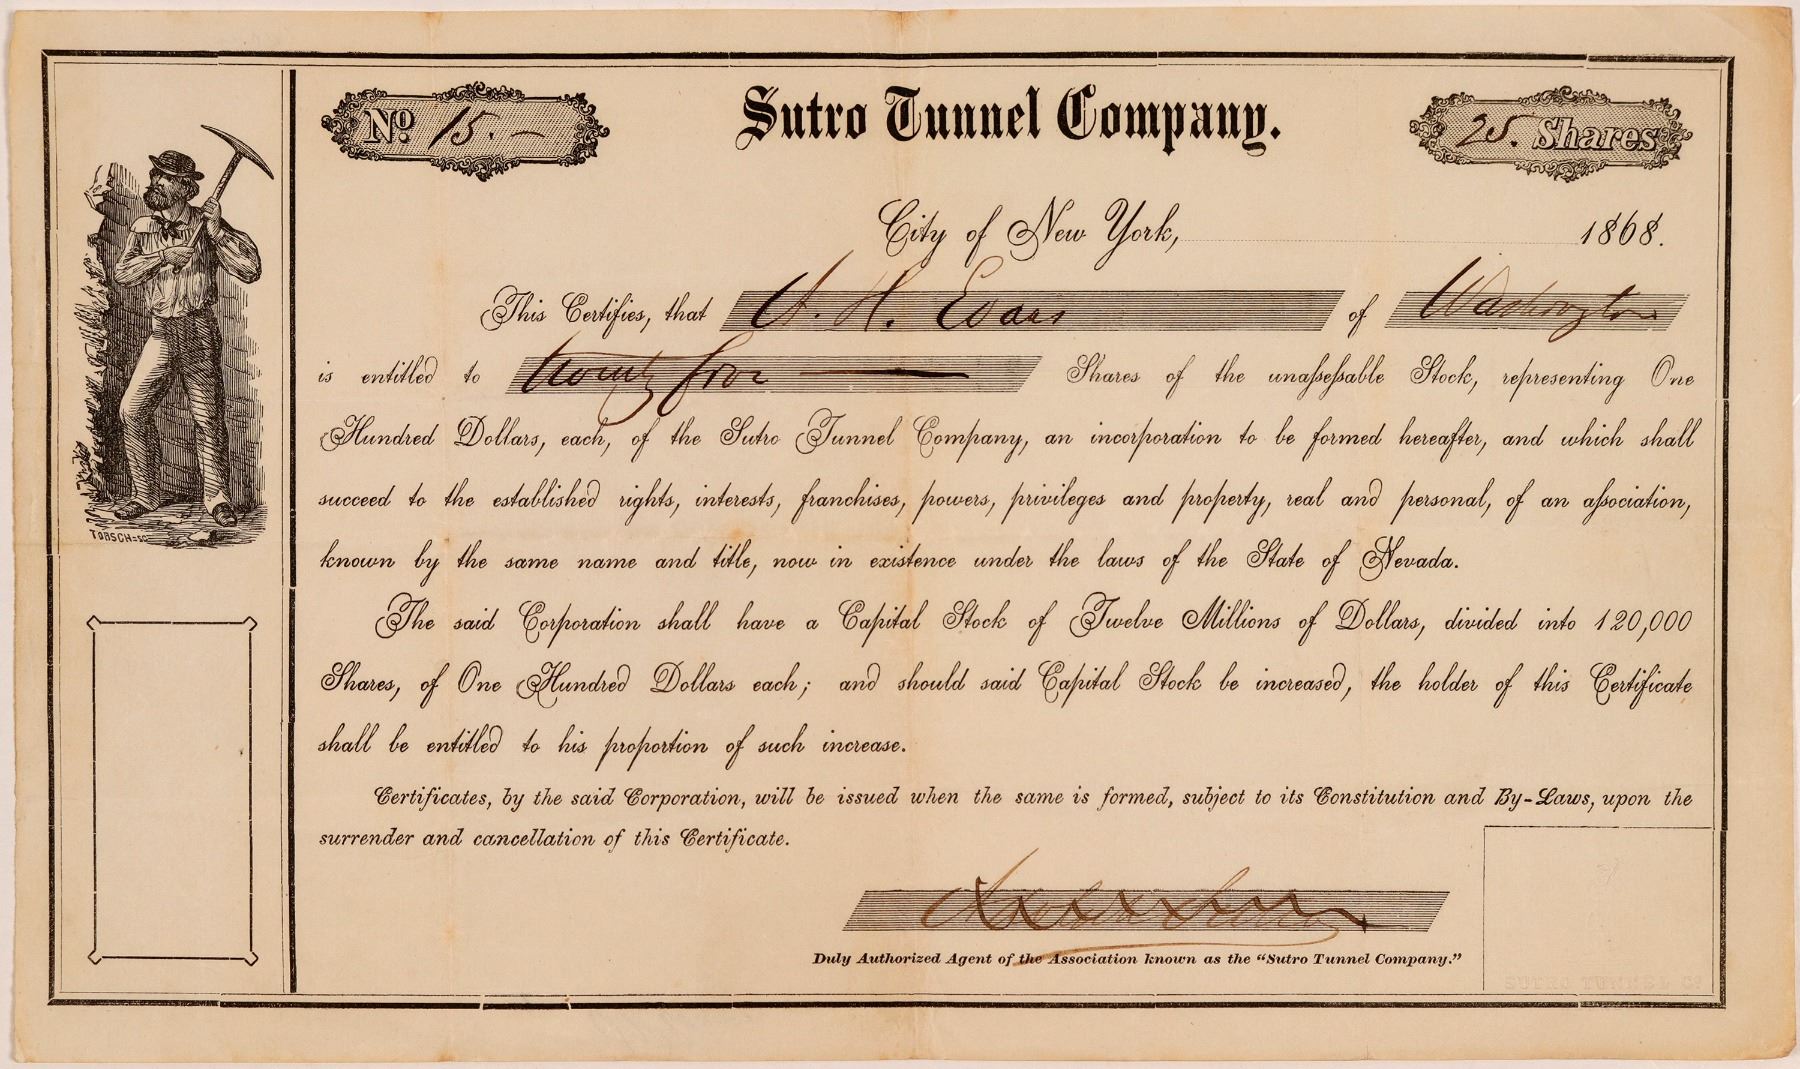 No. 15. —
Sutro Tunnel Company.
25. Shares
City of New York, 1868.
This Certifies, that H. Evans of Washington
is entitled to Twenty five — Shares of the unassessable Stock, representing One
Hundred Dollars, each, of the Sutro Tunnel Company, an incorporation to be formed hereafter, and which shall
succeed to the established rights, interests, franchises, powers, privileges and property, real and personal, of an association,
known by the same name and title, now in existence under the laws of the State of Nevada.
The said Corporation shall have a Capital Stock of Twelve Millions of Dollars, divided into 120,000
Shares, of One Hundred Dollars each; and should said Capital Stock be increased, the holder of this Certificate
shall be entitled to his proportion of such increase.
Certificates, by the said Corporation, will be issued when the same is formed, subject to its Constitution and By-Laws, upon the
surrender and cancellation of this Certificate.
Duly Authorized Agent of the Association known as the “Sutro Tunnel Company.”
TOBSCH=SC
SUTRO TUNNEL CO